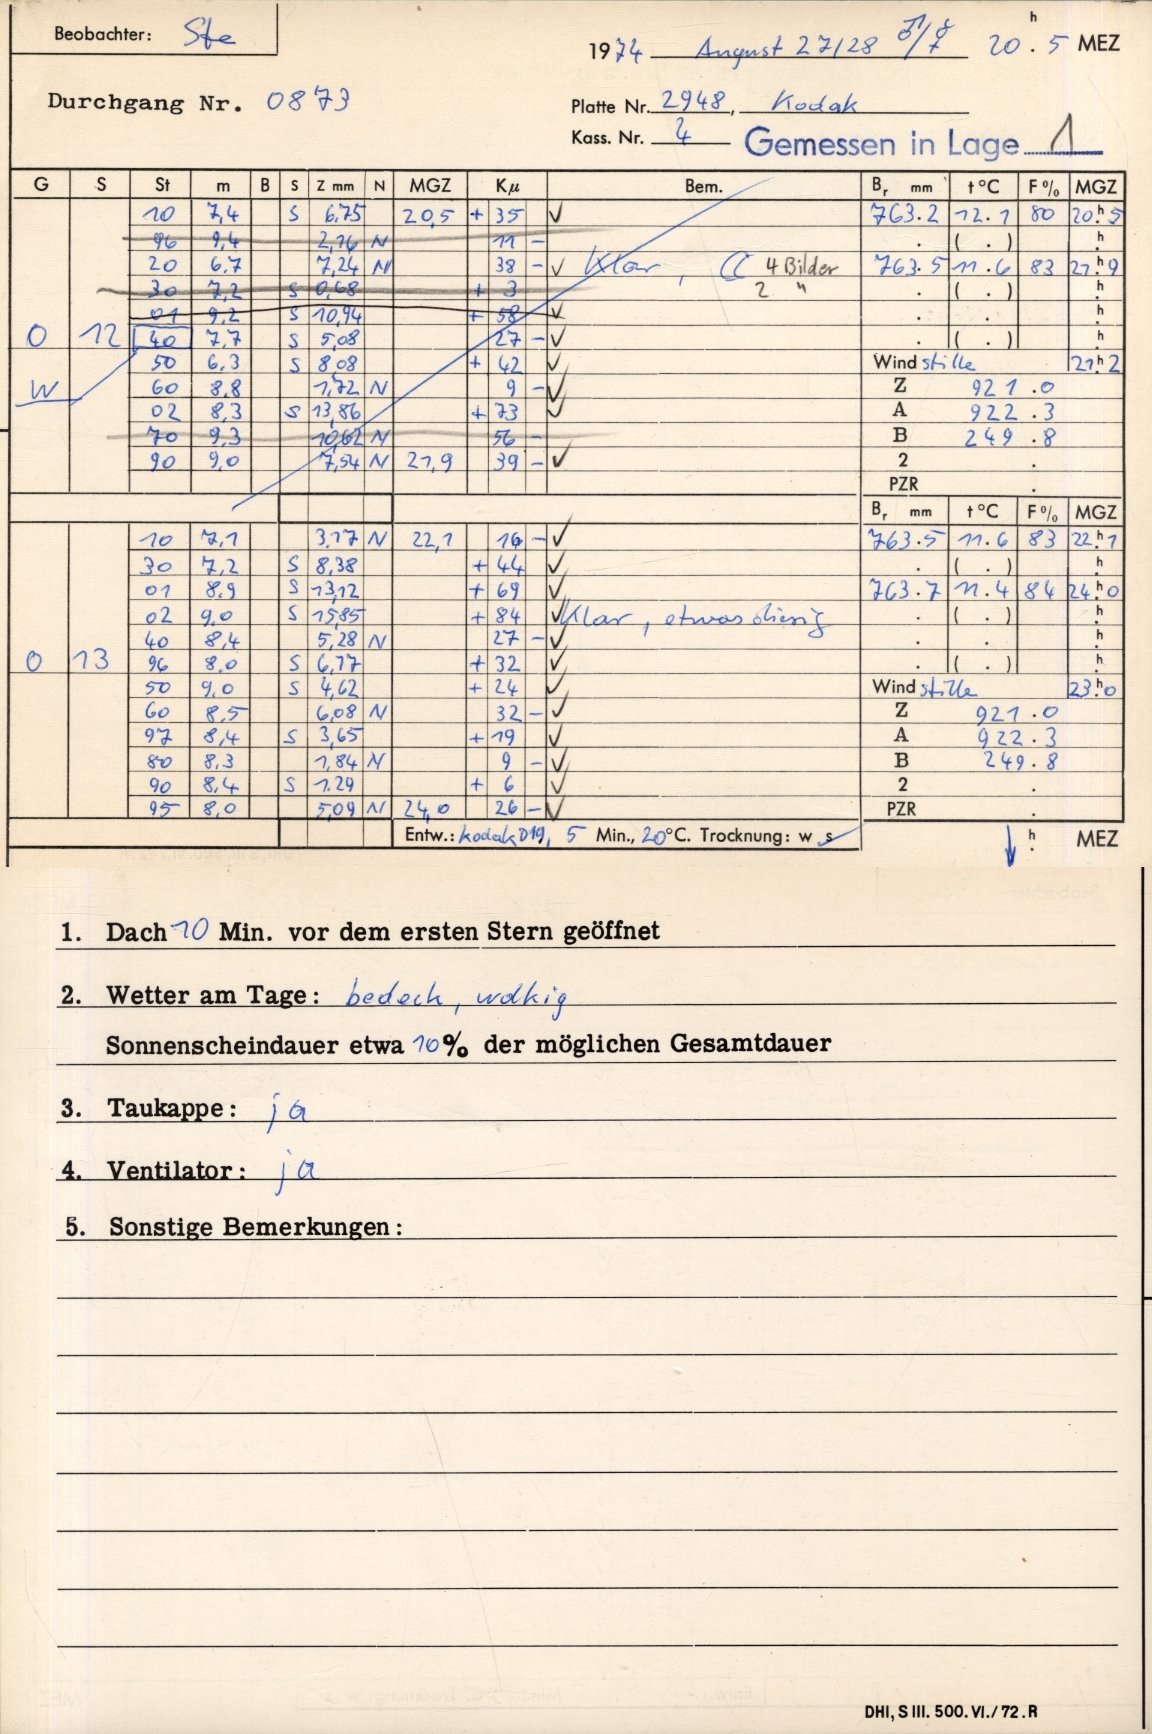 Beobachter: Ste
1974 August 27/28 ♂/☿ 20 h . 5 MEZ
Durchgang Nr. 0873
Platte Nr. 2948, Kodak
Kass. Nr. 4 Gemessen in Lage 1
G S St m B S Z mm N MGZ Kμ Bem. Br mm t °C F % MGZ
10 7,4 S 6,75 20,5 + 35 ✓ 763.2 12.1 80 20 h 5
96 9,4 2,16 N 11 - . ( . ) h
20 6,7 7,24 N 38 - ✓ Klar, ☾ 4 Bilder 763.5 11.6 83 21 h 9
30 7,2 S 0,68 + 3 2 " . ( . ) h
01 9,2 S 10,94 + 58 ✓ . . h
0 12 40 7,7 S 5,08 27 - ✓ . ( . ) h
50 6,3 S 8,08 + 42 ✓ Wind stille 21 h 2
W 60 8,8 1,72 N 9 - ✓ Z 921.0
02 8,3 S 13,86 + 73 ✓ A 922.3
70 9,3 10,62 N 56 - B 249.8
90 9,0 7,54 N 21,9 39 - ✓ 2 .
PZR .
Br mm t °C F % MGZ
10 7,1 3,17 N 22,1 16 - ✓ 763.5 11.6 83 22 h 1
30 7,2 S 8,38 + 44 ✓ . ( . ) h
01 8,9 S 13,12 + 69 ✓ 763.7 11.4 84 24 h 0
02 9,0 S 15,85 + 84 ✓ Klar, etwas diesig . ( . ) h
40 8,4 5,28 N 27 - ✓ . . h
0 13 96 8,0 S 6,17 + 32 ✓ . ( . ) h
50 9,0 S 4,62 + 24 ✓ Wind stille 23 h 0
60 8,5 6,08 N 32 - ✓ Z 921.0
97 8,4 S 3,65 + 19 ✓ A 922.3
80 8,3 1,84 N 9 - ✓ B 249.8
90 8,4 S 1,29 + 6 ✓ 2 .
95 8,0 5,09 N 24,0 26 - ✓ PZR .
Entw.: Kodak D19, 5 Min., 20°C. Trocknung: w s ↓ h . MEZ
1. Dach 10 Min. vor dem ersten Stern geöffnet
2. Wetter am Tage: bedeck, wolkig
Sonnenscheindauer etwa 10% der möglichen Gesamtdauer
3. Taukappe: ja
4. Ventilator: ja
5. Sonstige Bemerkungen:
DHI, S III. 500. VI./72. R